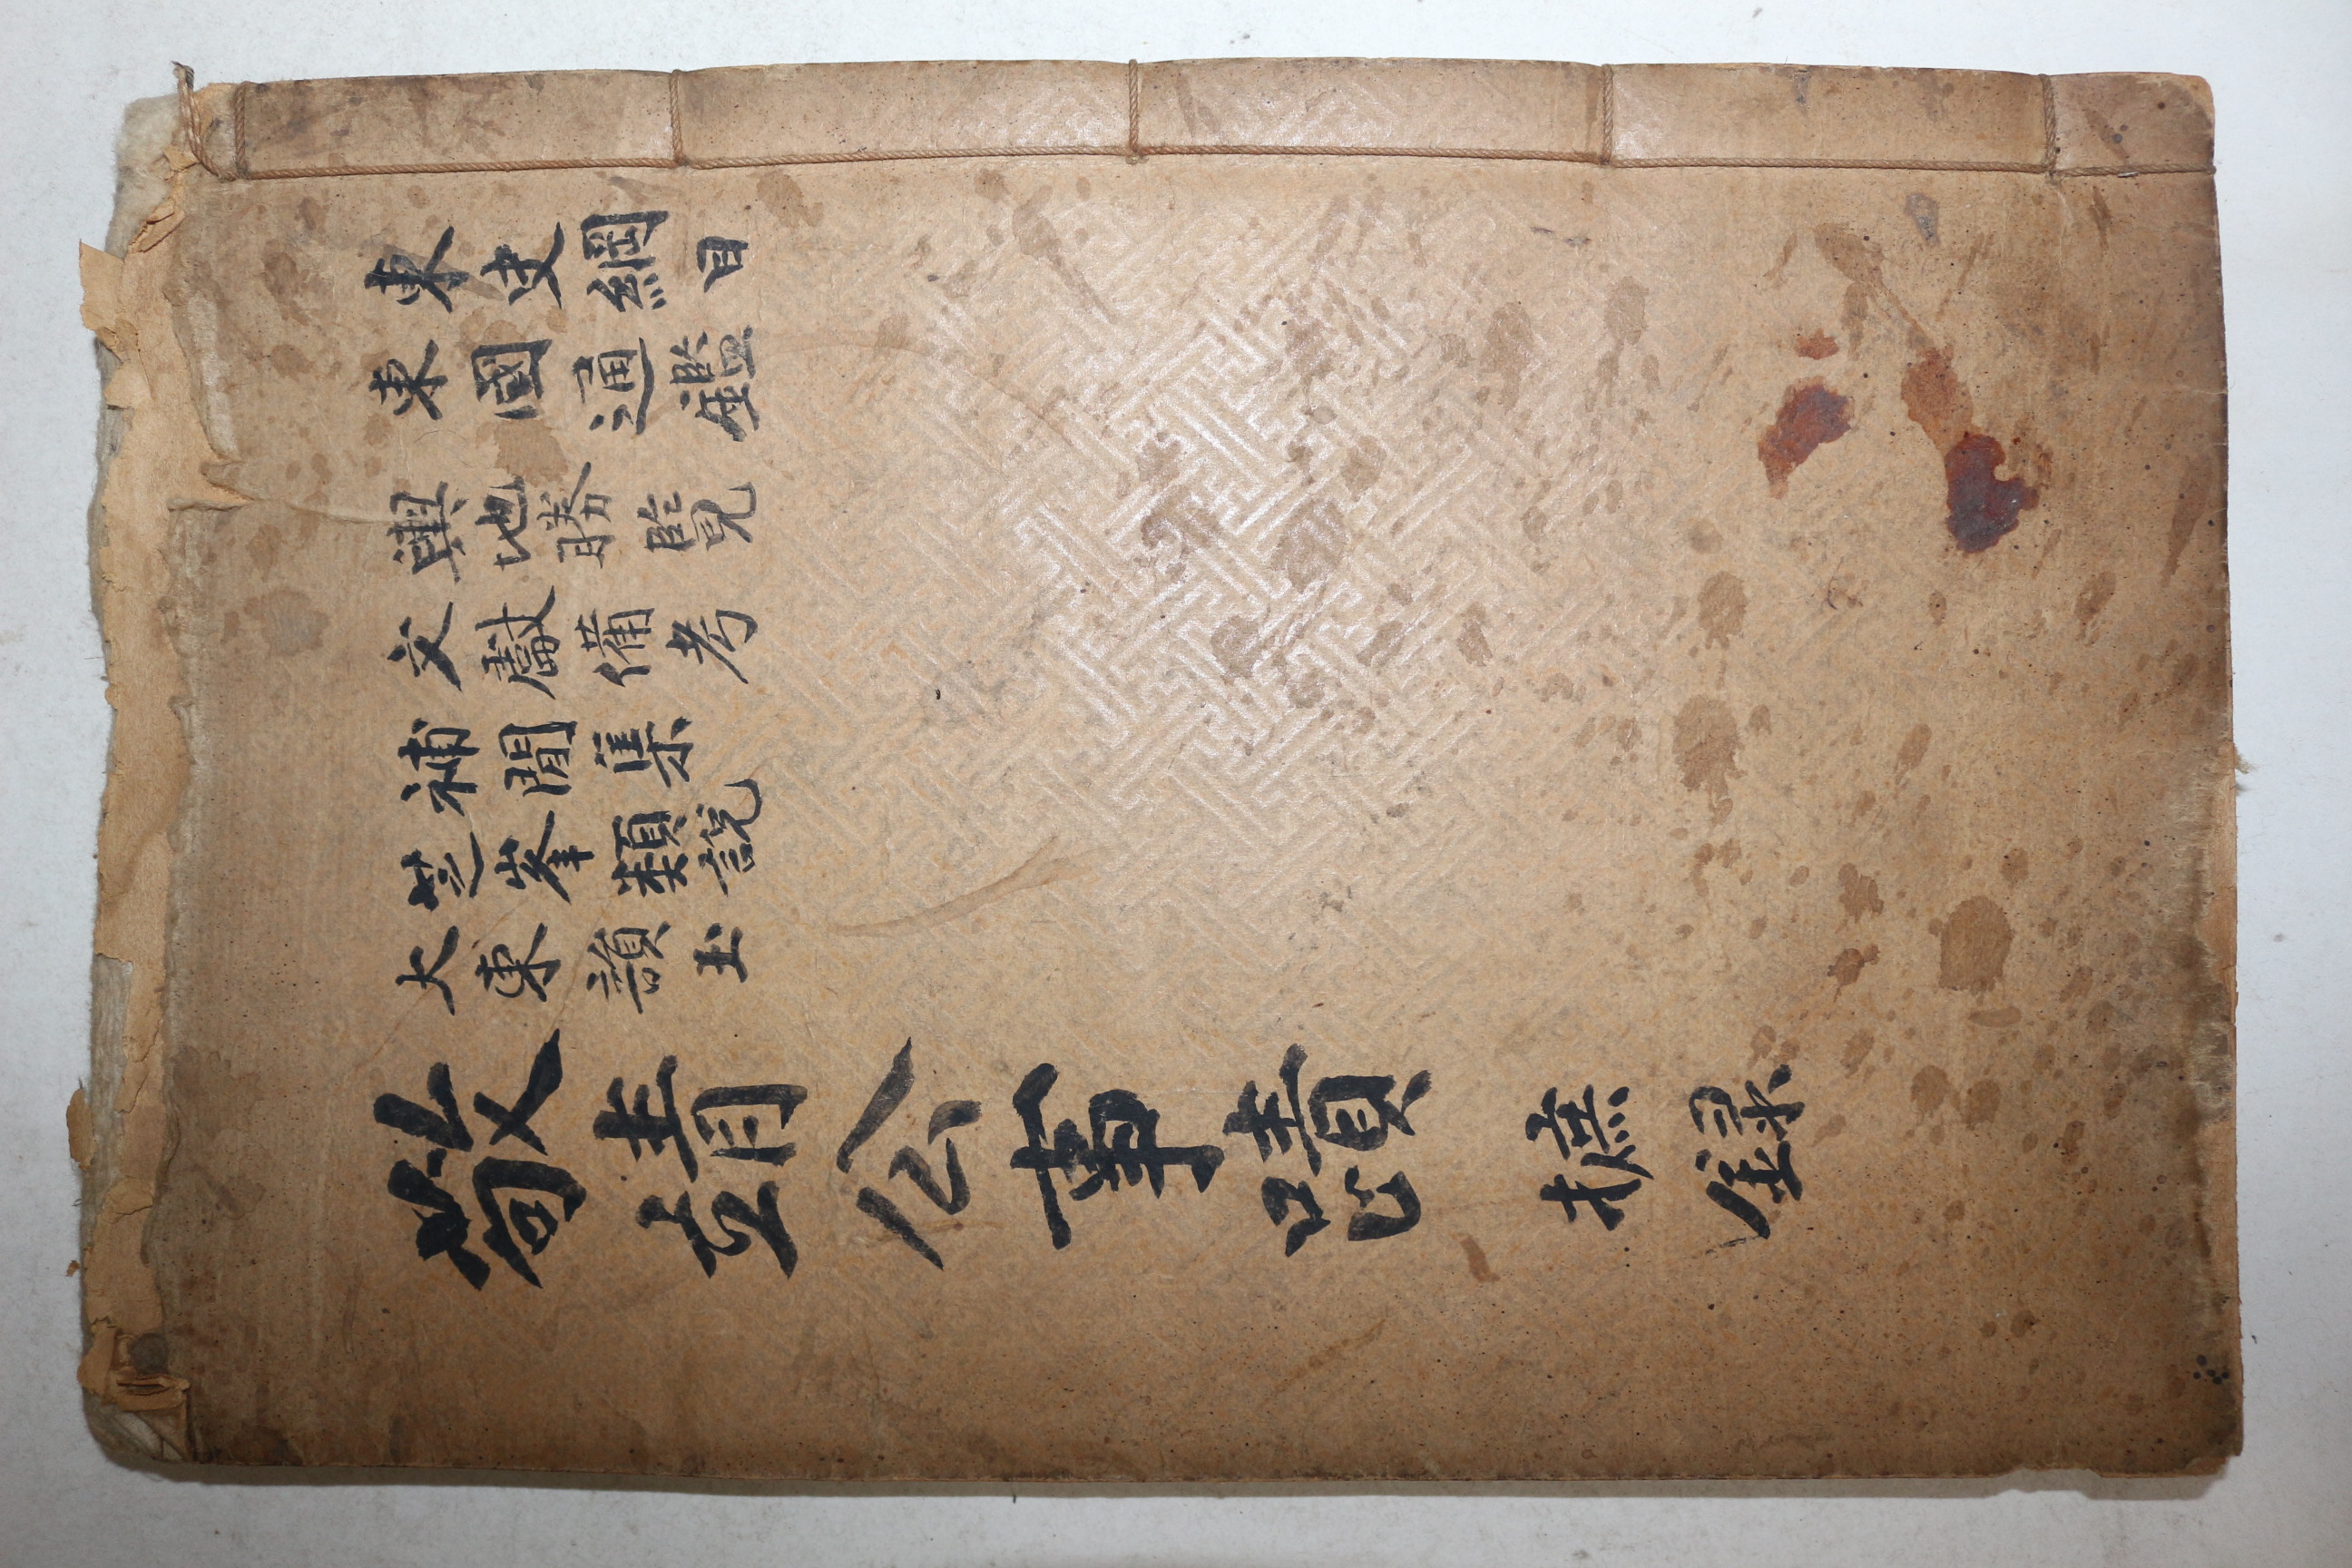 東史綱目
東國通鑑
輿地勝覧
文獻備考
補閒集
芝峯類說
大東韻玉
敬靖公事蹟 摭録